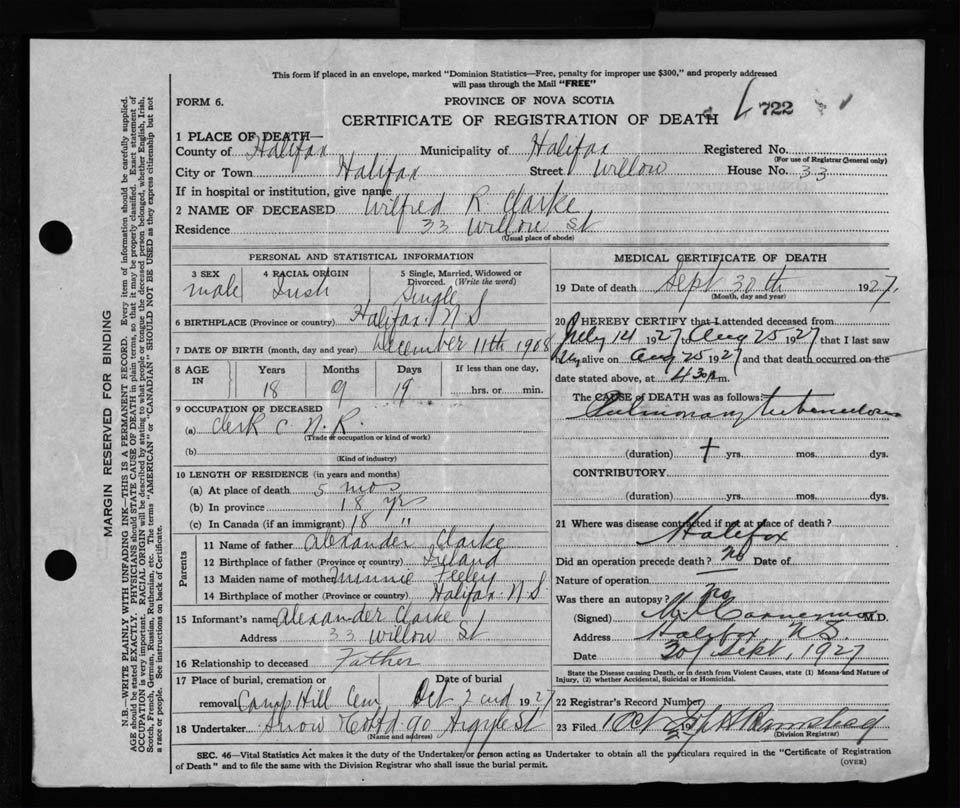 This form if placed in an envelope, marked "Dominion Statistics—Free, penalty for improper use $300," and properly addressed
will pass through the Mail "FREE"
FORM 6.
PROVINCE OF NOVA SCOTIA
722
CERTIFICATE OF REGISTRATION OF DEATH
1 PLACE OF DEATH—
County of Halifax Municipality of Halifax Registered No.
(For use of Registrar General only)
City or Town Halifax Street Willow House No. 33
If in hospital or institution, give name
2 NAME OF DECEASED Wilfred R Clarke
Residence 33 Willow St
(Usual place of abode)
PERSONAL AND STATISTICAL INFORMATION
3 SEX 4 RACIAL ORIGIN 5 Single, Married, Widowed or
Divorced. (Write the word)
male Irish Single
6 BIRTHPLACE (Province or country) Halifax N S
7 DATE OF BIRTH (month, day and year) December 11th 1908
8 AGE IN Years Months Days If less than one day,
18 9 19 hrs. or min.
9 OCCUPATION OF DECEASED
(a) Clerk C. N. R.
(Trade or occupation or kind of work)
(b)
(Kind of industry)
10 LENGTH OF RESIDENCE (in years and months)
(a) At place of death 5 mos
(b) In province 18 yr
(c) In Canada (if an immigrant) 18 "
Parents
11 Name of father Alexander Clarke
12 Birthplace of father (Province or country) Ireland
13 Maiden name of mother Minnie Feeley
14 Birthplace of mother (Province or country) Halifax N S
15 Informant's name Alexander Clarke
Address 33 Willow St
16 Relationship to deceased Father
17 Place of burial, cremation or Date of burial
removal Camp Hill Cem Oct 2nd 1927
18 Undertaker Snow & Co Ltd 90 Argyle St
(Name and address)
MEDICAL CERTIFICATE OF DEATH
19 Date of death Sept 30th 1927.
(Month, day and year)
20 I HEREBY CERTIFY that I attended deceased from
July 14 1927 to Aug 25 1927 that I last saw
him alive on Aug 25 1927 and that death occurred on the
date stated above, at 4 30 A m.
The CAUSE OF DEATH was as follows:
Pulmonary tuberculosis
(duration) yrs. mos. dys.
CONTRIBUTORY
(duration) yrs. mos. dys.
21 Where was disease contracted if not at place of death?
Halifax
Did an operation precede death? No Date of
Nature of operation
Was there an autopsy? no
(Signed) M.D.
Address Halifax, N.S.
Date 30 Sept, 1927
State the Disease causing Death, or in death from Violent Causes, state (1) Means and Nature of
Injury, (2) whether Accidental, Suicidal or Homicidal.
22 Registrar's Record Number
23 Filed 1 Oct
(Division Registrar)
SEC. 46—Vital Statistics Act makes it the duty of the Undertaker or person acting as Undertaker to obtain all the particulars required in the "Certificate of Registration
of Death" and to file the same with the Division Registrar who shall issue the burial permit.
(OVER)
MARGIN RESERVED FOR BINDING
N.B.—WRITE PLAINLY WITH UNFADING INK—THIS IS A PERMANENT RECORD. Every item of information should be carefully supplied.
AGE should be stated EXACTLY. PHYSICIANS should STATE CAUSE OF DEATH in plain terms, so that it may be properly classified. Exact statement of
OCCUPATION is very important. RACIAL ORIGIN will be described by stating to what people or tongue the deceased person belonged, whether English, Irish,
Scotch, French, German, Russian, Ruthenian, etc. The terms "AMERICAN" or "CANADIAN" SHOULD NOT BE USED as they express citizenship but not
a race or people. See instructions on back of Certificate.